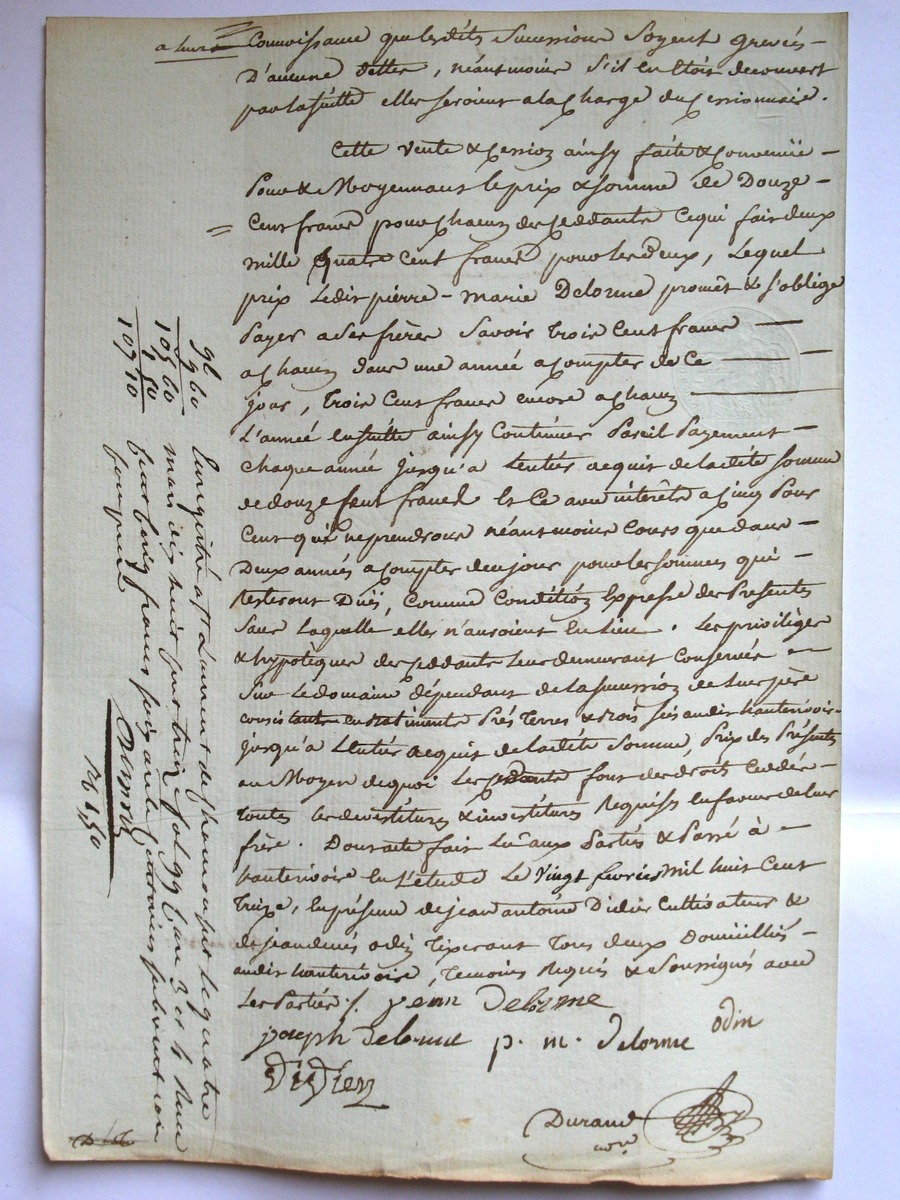 a leur Connoissance que lesdits Successions Soyent grevés -
D'aucune dettes, néantmoins S'il en étoit decouvert
par la Suitte elles seroient a la Charge du Cessionnaire.
Cette Vente & Cession ainsy faite & Convenüe -
Pour & Moyennant le prix & Somme de Douze -
Cent francs pour Chacun des Ceddants Ce qui fait deux
mille quatre Cent francs pour les deux, Lequel
prix Ledit pierre - marie Delorme promêt & s'oblige
Payer a Ses frères Savoir Trois Cent francs
a Chacun dans une année a Compter de Ce
jour, Trois Cent francs encore a Chacun
L'année Ensuitte ainsy Continuer Pareil Payement -
Chaque année jusqu'a Lentier acquit de ladite Somme
de douze Cent francs Et Ce avec interêts a Cinq Pour
Cent qui ne prendront néantmoins Cours que dans -
Deux années a Compter de ce jour pour les sommes qui -
Resteront Duës, Comme Condition Expresse des Presentes
Sans Laquelle elles n'auroient Eu lieu. Les privilèges
& hypotèques des Ceddants Leur demeurant Conservés -
Sur Le domaine dépendant de la Succession de leur père
Consistante en Batiments Prés Terres & Bois Sis audit hauterivoire
jusqu'a Lentier acquit de ladite Somme, Prix des Présentes
au Moyen de quoi Les Ceddants font des droits Ceddés -
Toutes les devestitures & investitures Requises En faveur de leur
frère. Dont acte fait Lû aux Parties & Passé à -
hauterivoire En L'étude Le Vingt fevrier Mil huit Cent
Treize, En présence de jean antoine Didier Cultivateur &
de jean denis odin Tixerant Tous deux Domiciliés -
audit hauterivoire, Temoins Requis & Soussignés avec
Les Parties ./. jean Delorme
joseph delorme p. m. delorme odin
DiDier
Durand
no.re
Enregistré à St Laurent de Chamousset le quatre
mars dix huit cent treize fol. 99
francs soixante centimes subvention
comprise
96
9 60
105 60
1 50
107 10